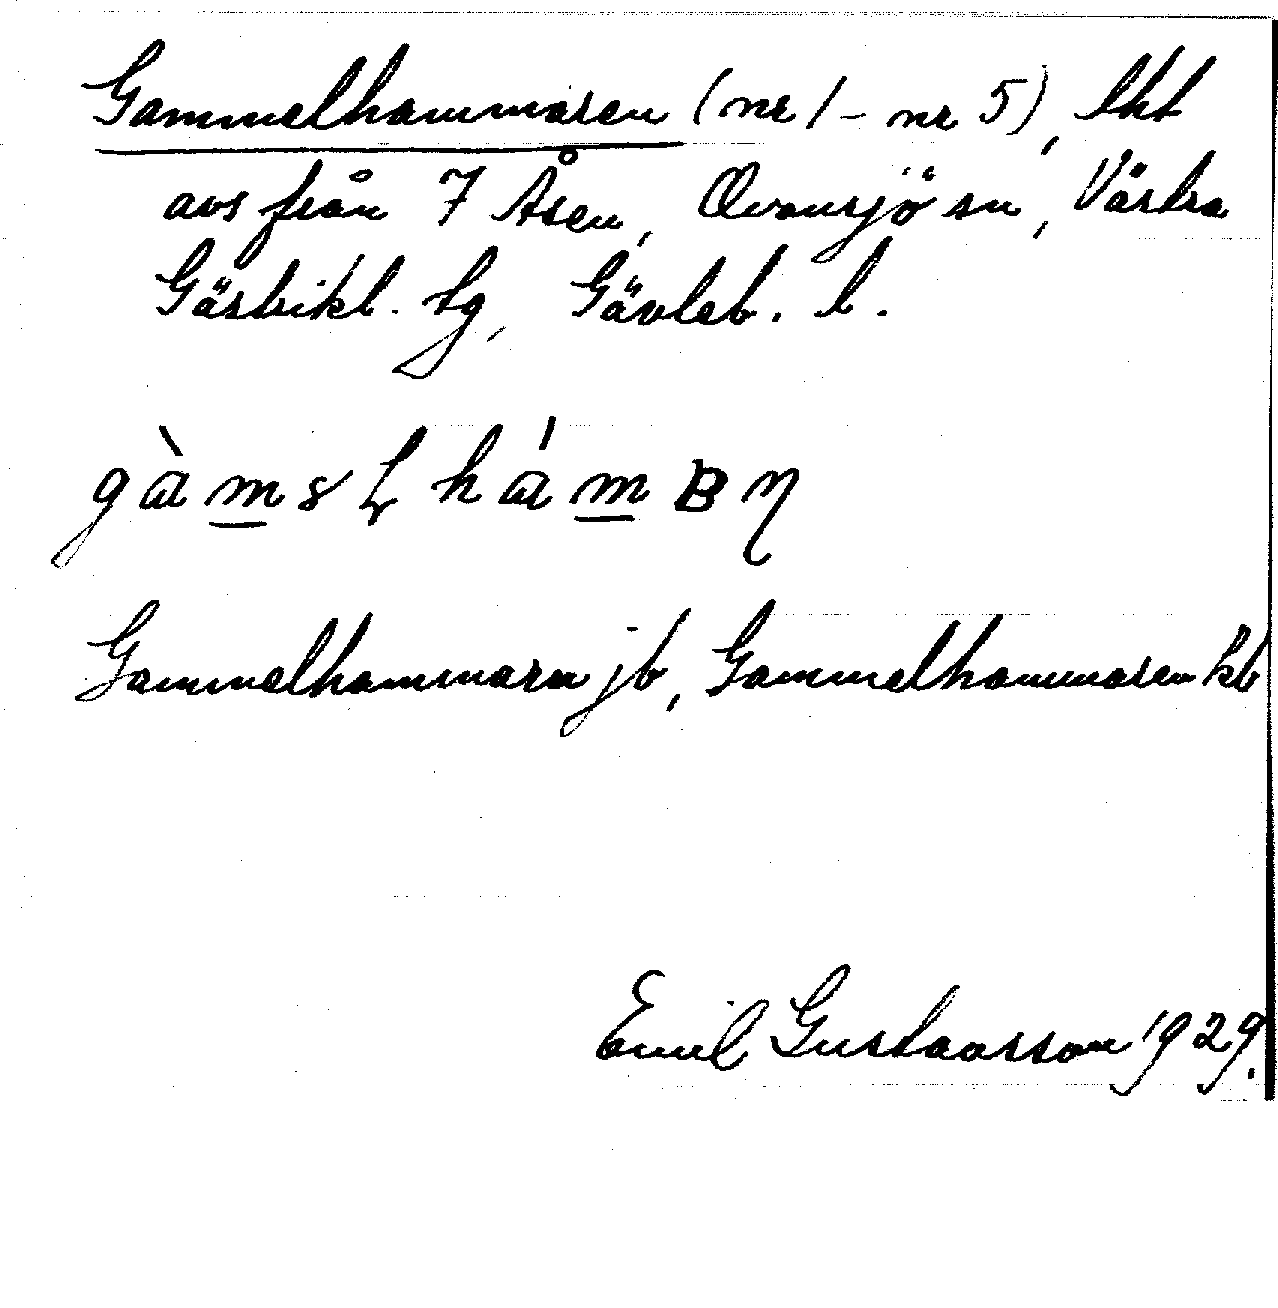 Gammelhammaren (nr 1 - nr 5), lht
avs från 7 Åsen, Ovansjö sn, Västra
Gästrikl. tg, Gävleb. l.
Gammelhammaren jb, Gammelhammaren kb
Emil Gustavsson 1929.